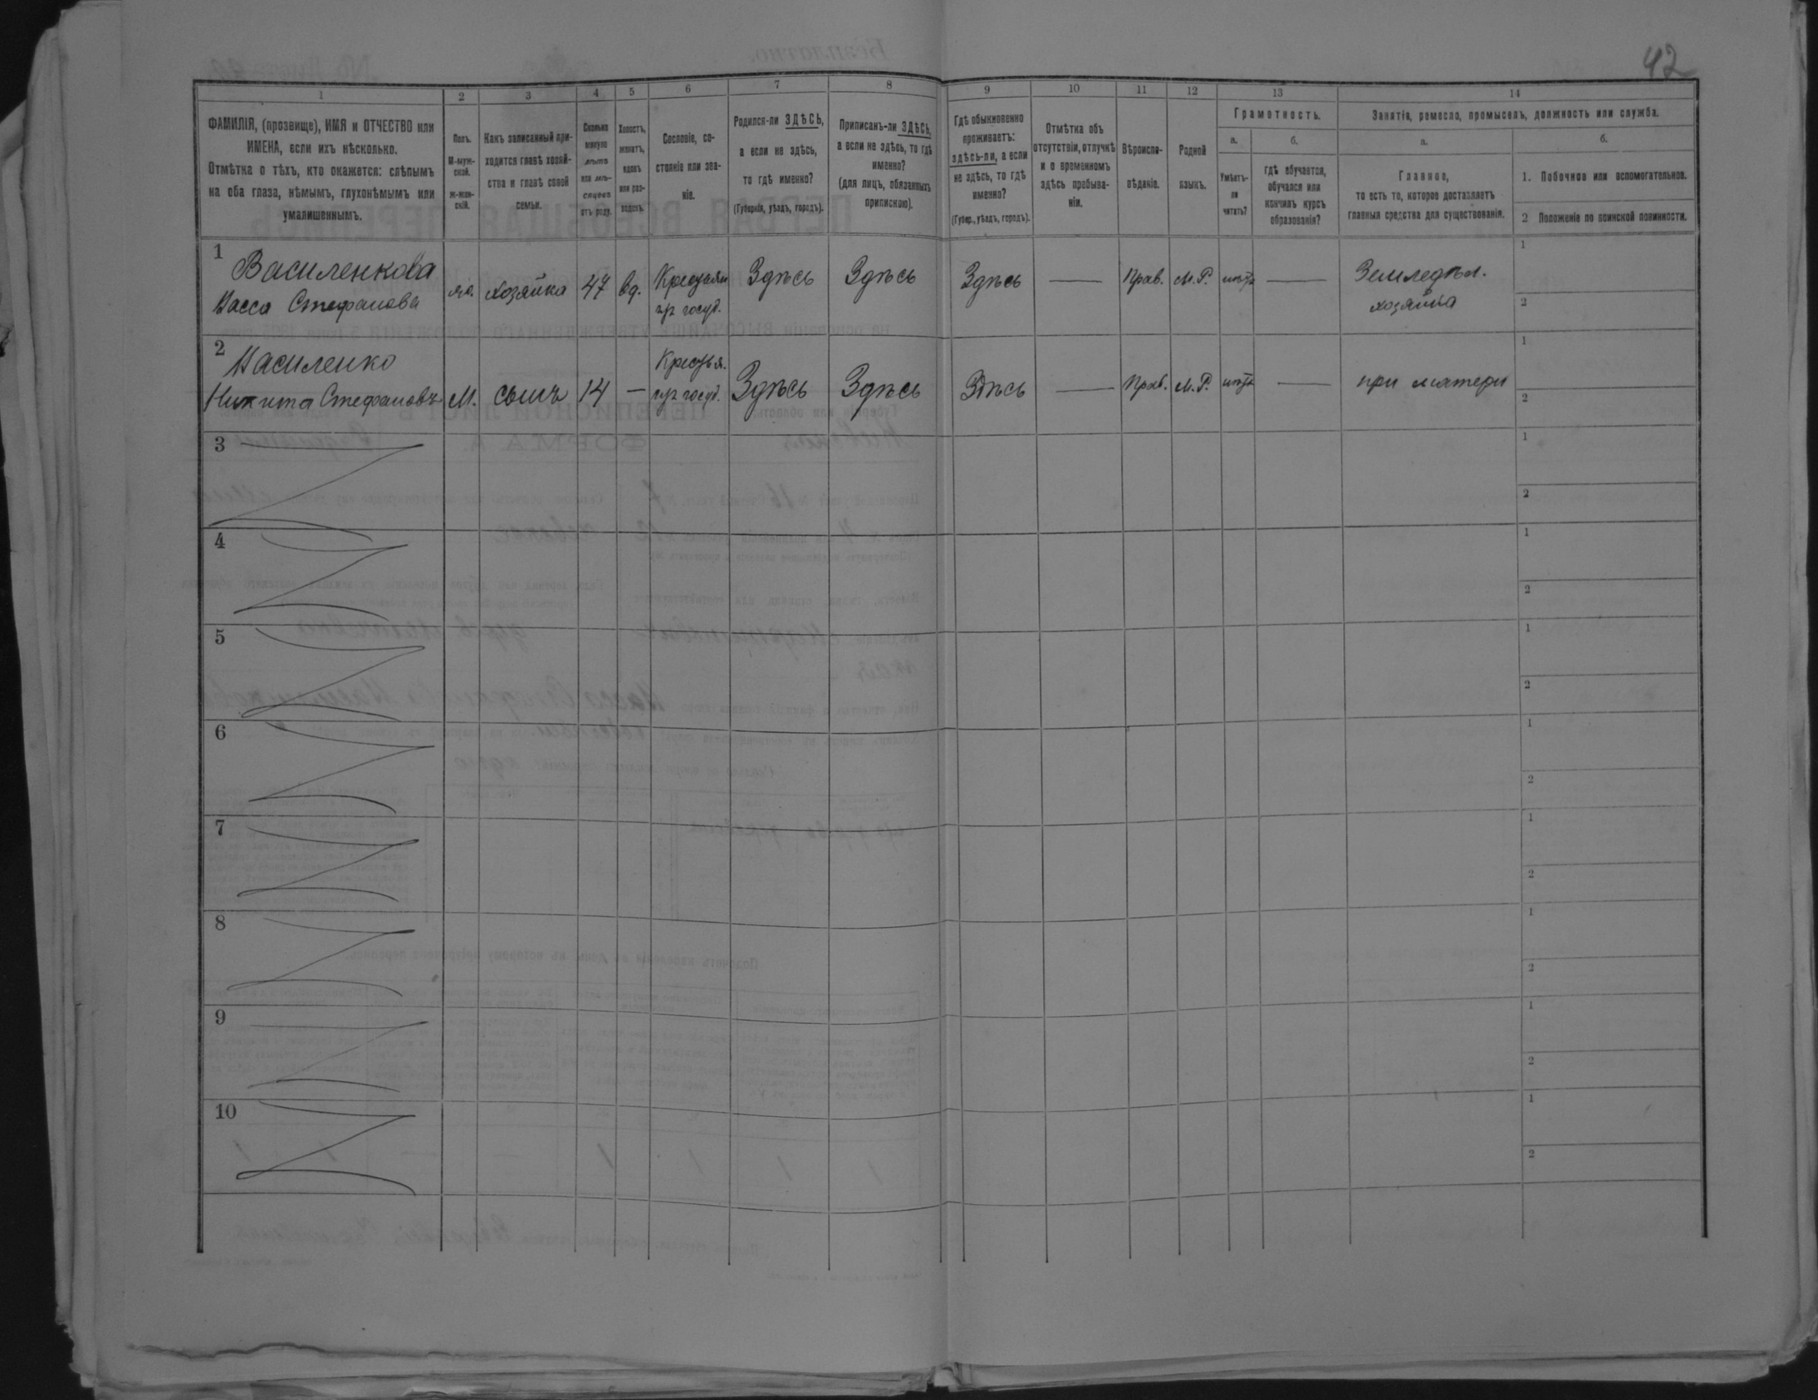 42
1 2 3 4 5 6 7 8 9 10 11 12 13 14
ФАМИЛІЯ, (прозвище), ИМЯ и ОТЧЕСТВО или
ИМЕНА, если ихъ нѣсколько.
Отмѣтка о тѣхъ, кто окажется: слѣпымъ
на оба глаза, нѣмымъ, глухонѣмымъ или
умалишеннымъ.
Полъ.
М-муж-
ской.
Ж-жен-
скій.
Какъ записанный при-
ходится главѣ хозяй-
ства и главѣ своей
семьи.
Сколько
минуло
лѣтъ
или мѣ-
сяцевъ
отъ роду.
Холостъ,
женатъ,
вдовъ
или раз-
веденъ.
Сословіе, со-
стояніе или зва-
ніе.
Родился-ли ЗДѢСЬ,
а если не здѣсь,
то гдѣ именно?
(Губернія, уѣздъ, городъ).
Приписанъ-ли ЗДѢСЬ,
а если не здѣсь, то гдѣ
именно?
(для лицъ, обязанныхъ
припискою).
Гдѣ обыкновенно
проживаетъ:
здѣсь-ли, а если
не здѣсь, то гдѣ
именно?
(Губер., уѣздъ, городъ).
Отмѣтка объ
отсутствіи, отлучкѣ
и о временномъ
здѣсь пребыва-
ніи.
Вѣроиспо-
вѣданіе.
Родной
языкъ.
Грамотность.
а.
Умѣетъ-
ли
читать?
б.
гдѣ обучается,
обучался или
кончилъ курсъ
образованія?
Занятія, ремесло, промыселъ, должность или служба.
а.
Главное,
то есть то, которое доставляетъ
главныя средства для существованія.
б.
1. Побочное или вспомогательное.
2 Положеніе по воинской повинности.
1 Василенкова
Васса Стефанова
ж. хозяйка 47 вд. Крестьян. гр госуд. Здѣсь Здѣсь Здѣсь — Прав. М.Р. нѣтъ — Земледѣл.
хозяйка
1
2
2 Василенко
Никита Стефановъ М. сынъ 14 — Крестья. гр госуд. Здѣсь Здѣсь Здѣсь — Прав. М.Р. нѣтъ — при матери
1
2
3
1
2
4
1
2
5
1
2
6
1
2
7
1
2
8
1
2
9
1
2
10
1
2